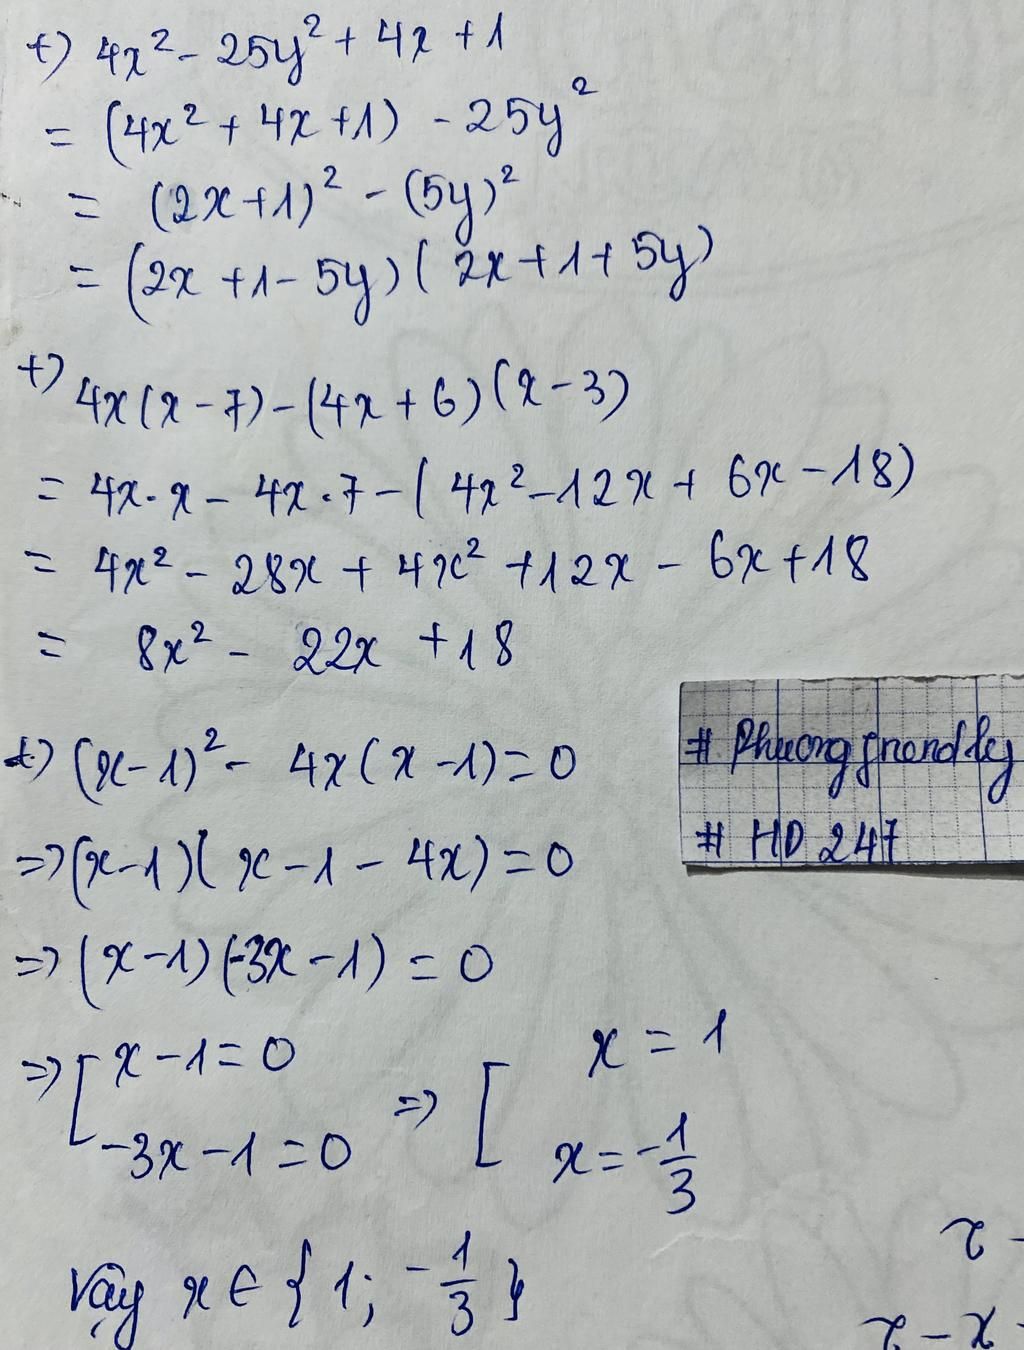 +) 4x² - 25y² + 4x + 1
= (4x² + 4x + 1) - 25y²
= (2x + 1)² - (5y)²
= (2x + 1 - 5y) ( 2x + 1 + 5y)
+) 4x(x - 7) - (4x + 6)(x - 3)
= 4x · x - 4x · 7 - ( 4x² - 12x + 6x - 18)
= 4x² - 28x + 4x² + 12x - 6x + 18
= 8x² - 22x + 18
+) (x - 1)² - 4x( x - 1) = 0
=> (x - 1)( x - 1 - 4x) = 0
=> (x - 1)(-3x - 1) = 0
=> [ x - 1 = 0 => [ x = 1
-3x - 1 = 0 x = -1/3
Vậy x ∈ { 1; -1/3 }
# HD 247